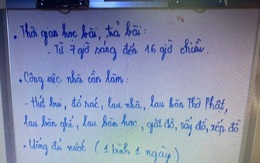 • Thời gian học bài, trả bài:
- Từ 7 giờ sáng đến 16 giờ chiều.
• Công việc nhà cần làm:
- Hút bụi, đổ rác, lau nhà, lau bàn Thờ Phật,
lau bàn ghế, lau bàn học, giặt đồ, sấy đồ, xếp đồ
- Uống đủ nước (1 bình 1 ngày)